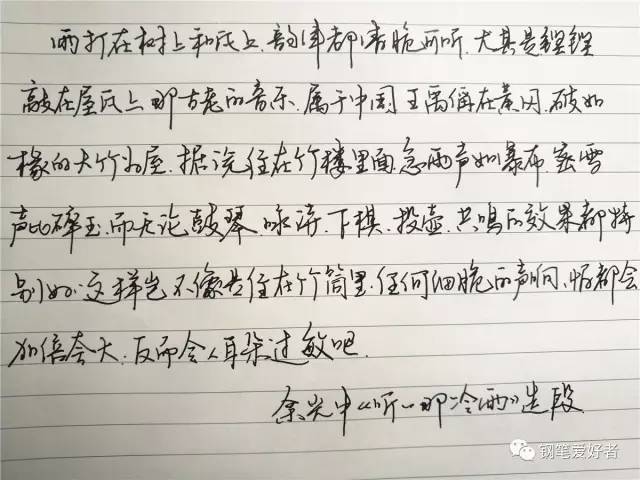 雨打在树上和瓦上,韵律都清脆可听。尤其是铿铿
敲在屋瓦上那古老的音乐,属于中国。王禹偁在黄冈,破如
椽的大竹为屋瓦。据说住在竹楼里面,急雨声如瀑布,密雪
声比碎玉,而无论鼓琴,咏诗,下棋,投壶,共鸣的效果都特
别好。这样岂不像是住在竹筒里,任何细脆的声响,怕都会
加倍夸大,反而令人耳朵过敏吧。
余光中《听听那冷雨》选段
钢笔爱好者